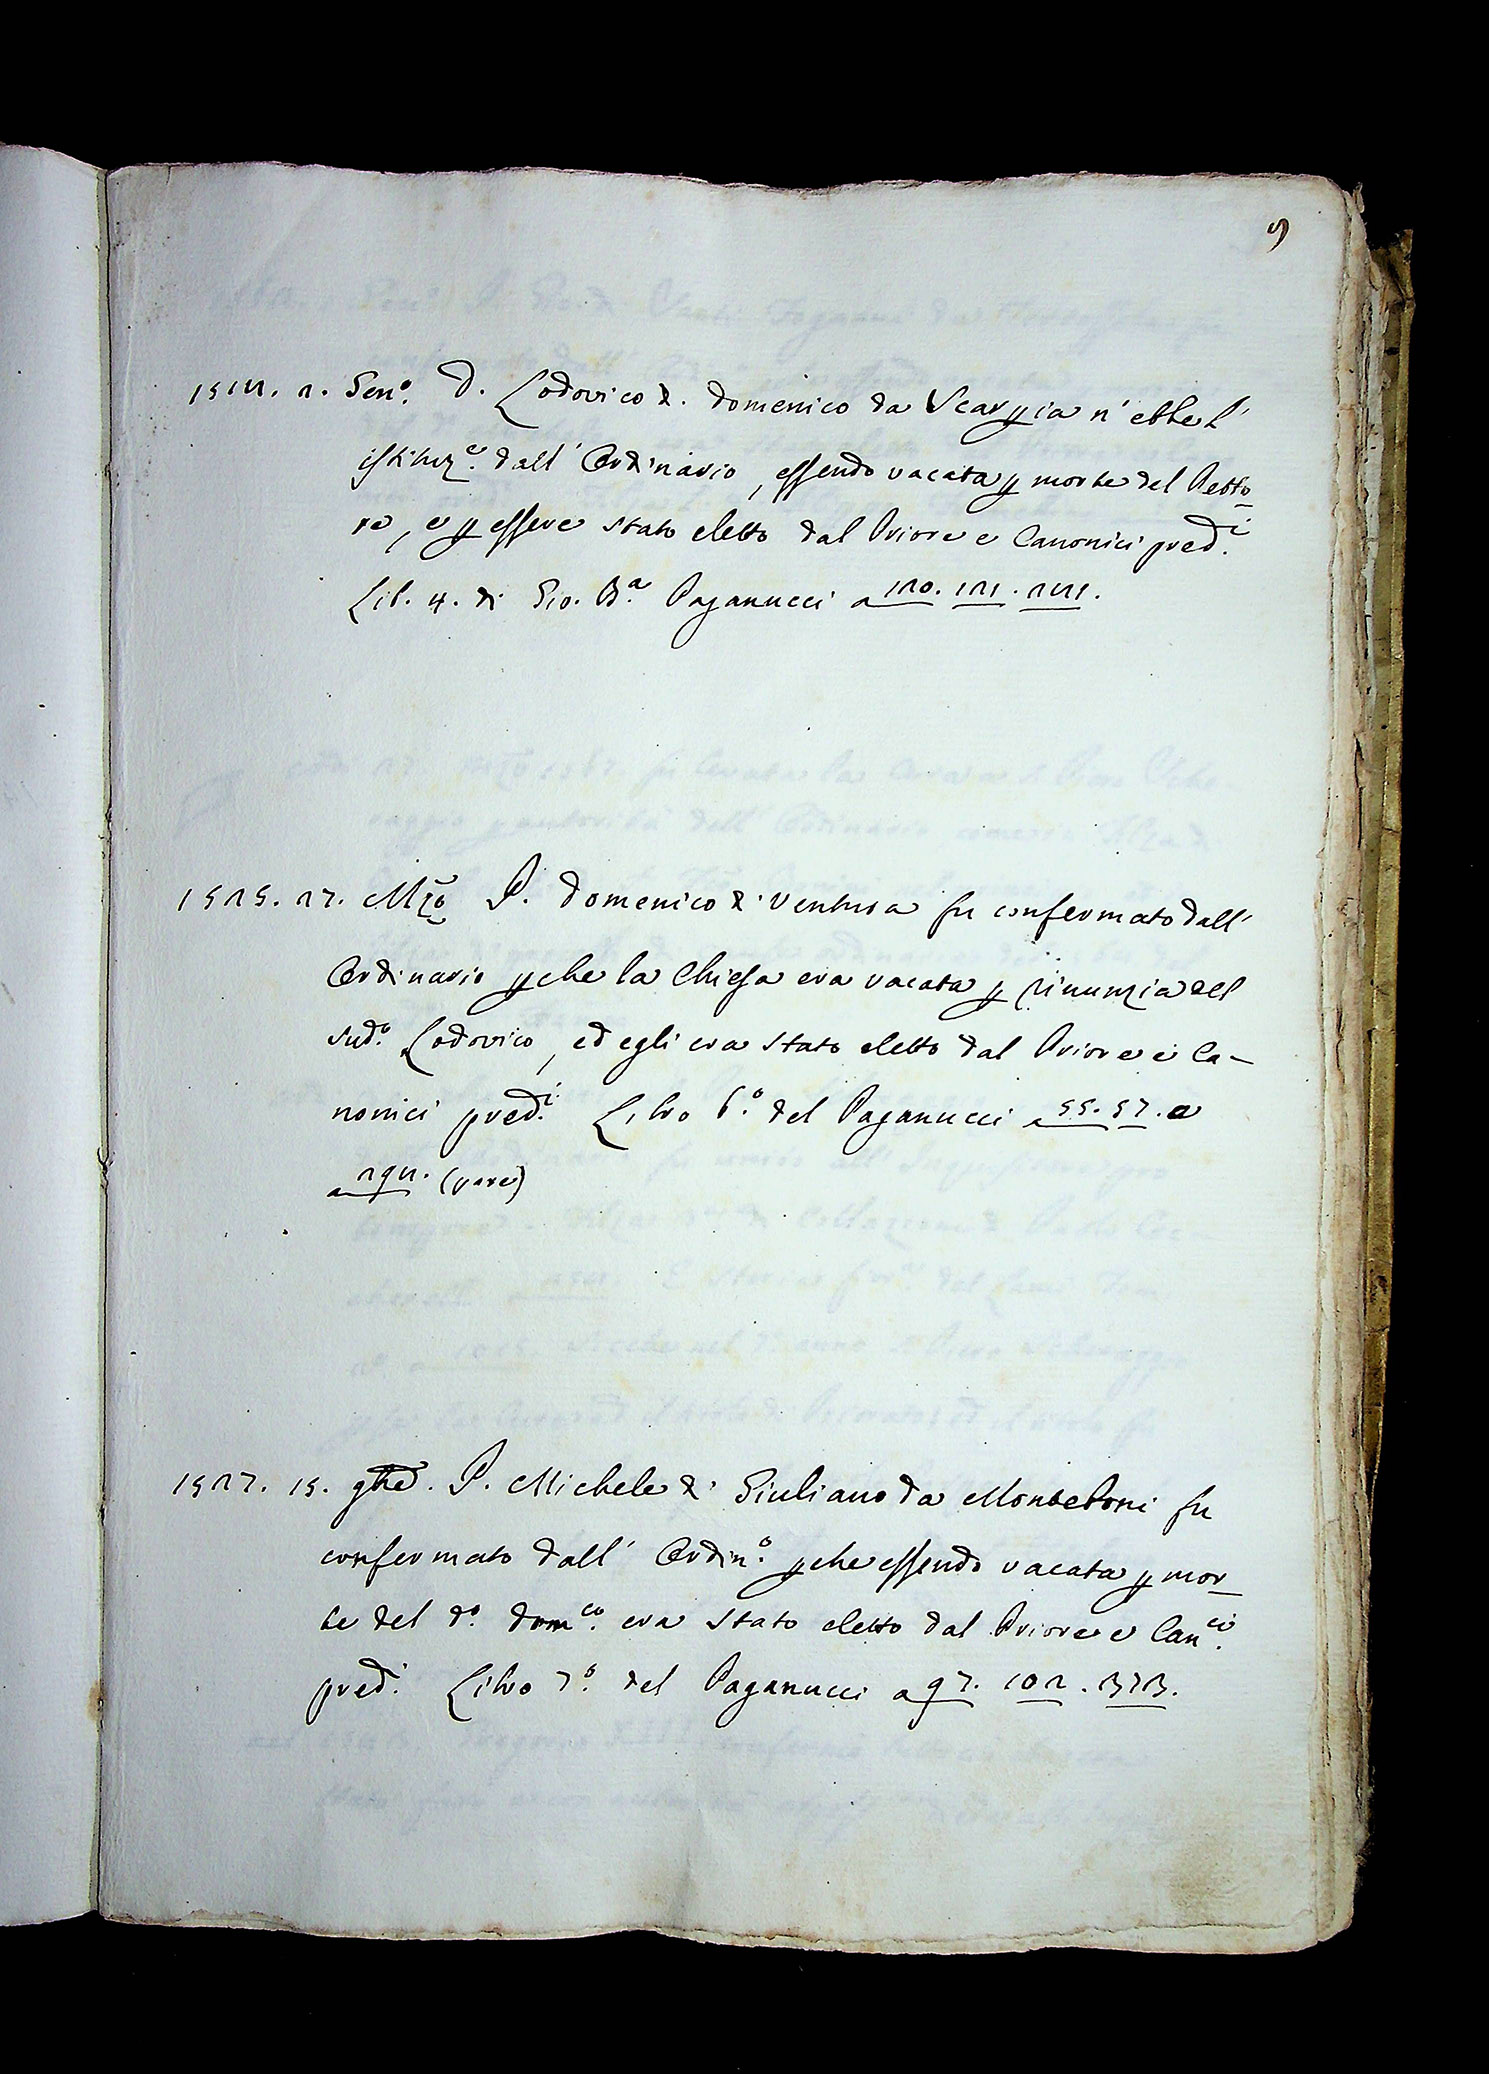 9
1514. 2. Gen.º D. Lodovico di Domenico da Scarpia n' ebbe l'
istituz.e dall' Ordinario, essendo vacata p morte del Retto
re, e p essere stato eletto dal Priore e Canonici pred.i
Lib. 4. di Gio. B.a Paganucci a 120. 121. 241.
1525. 27. Mzo P. Domenico di Ventura fu confermato dall'
Ordinario p che la Chiesa era vacata p rinunzia del
sud.º Lodovico, ed egli era stato eletto dal Priore e Ca-
nonici pred.i Libro 6.º del Paganucci a 55. 57. e
a 294. (pare)
1527. 15. P. Michele di Giuliano da Monteloni fu
confermato dall' Ordin.º p che essendo vacata p mor
te del d.º Dom.co era stato eletto dal Priore e Can.ci
pred.i Libro 7.º del Paganucci a 97. 102. 373.